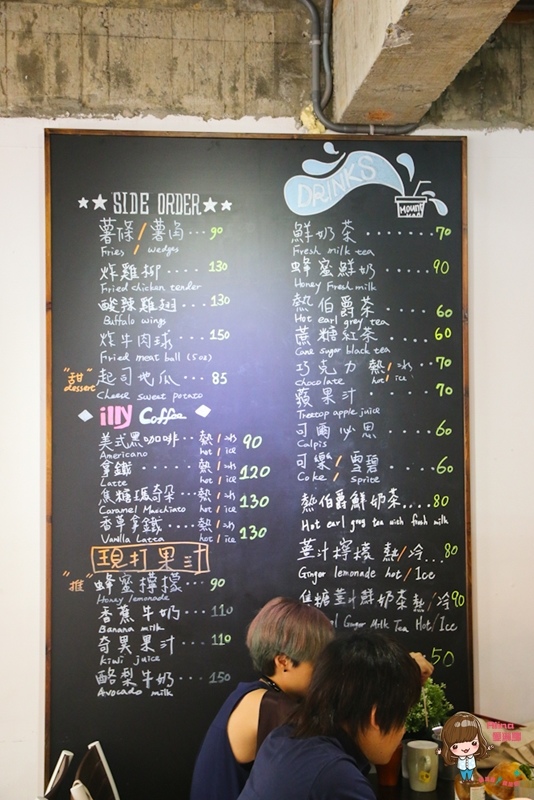 SIDE ORDER
薯條/薯角...90
Fries / wedges
炸雞柳....130
Fried chicken tender
酸辣雞翅...130
Buffalo wings
炸牛肉球...150
Fried meat ball (5oz)
"甜" dessert
起司地瓜...85
Cheese sweet potato
illy Coffee
美式黑咖啡..熱/冰 90
Americano hot / ice
拿鐵.....熱/冰 120
Latte hot / ice
焦糖瑪奇朵..熱/冰 130
Caramel Macchiato hot / ice
香草拿鐵...熱/冰 130
Vanilla Latte hot / ice
現打果汁
"推" 蜂蜜檸檬...90
Honey lemonade
香蕉牛奶...110
Banana milk
奇異果汁...110
kiwi juice
酪梨牛奶...150
Avocado milk
DRINKS
MOUNT
鮮奶茶.......70
Fresh milk tea
蜂蜜鮮奶.....90
Honey Fresh milk
熱伯爵茶.....60
Hot earl grey tea
蔗糖紅茶....60
Cane sugar black tea
巧克力 熱/冰 70
chocolate hot / ice
蘋果汁.....70
Treetop apple juice
可爾必思....60
Calpis
可樂/雪碧....60
Coke / Sprite
熱伯爵鮮奶茶....80
Hot earl grey tea with fresh milk
薑汁檸檬 熱/冷..80
Ginger lemonade hot / Ice
焦糖薑汁鮮奶茶熱/冷90
Ginger Milk Tea Hot/Ice
50
Mina